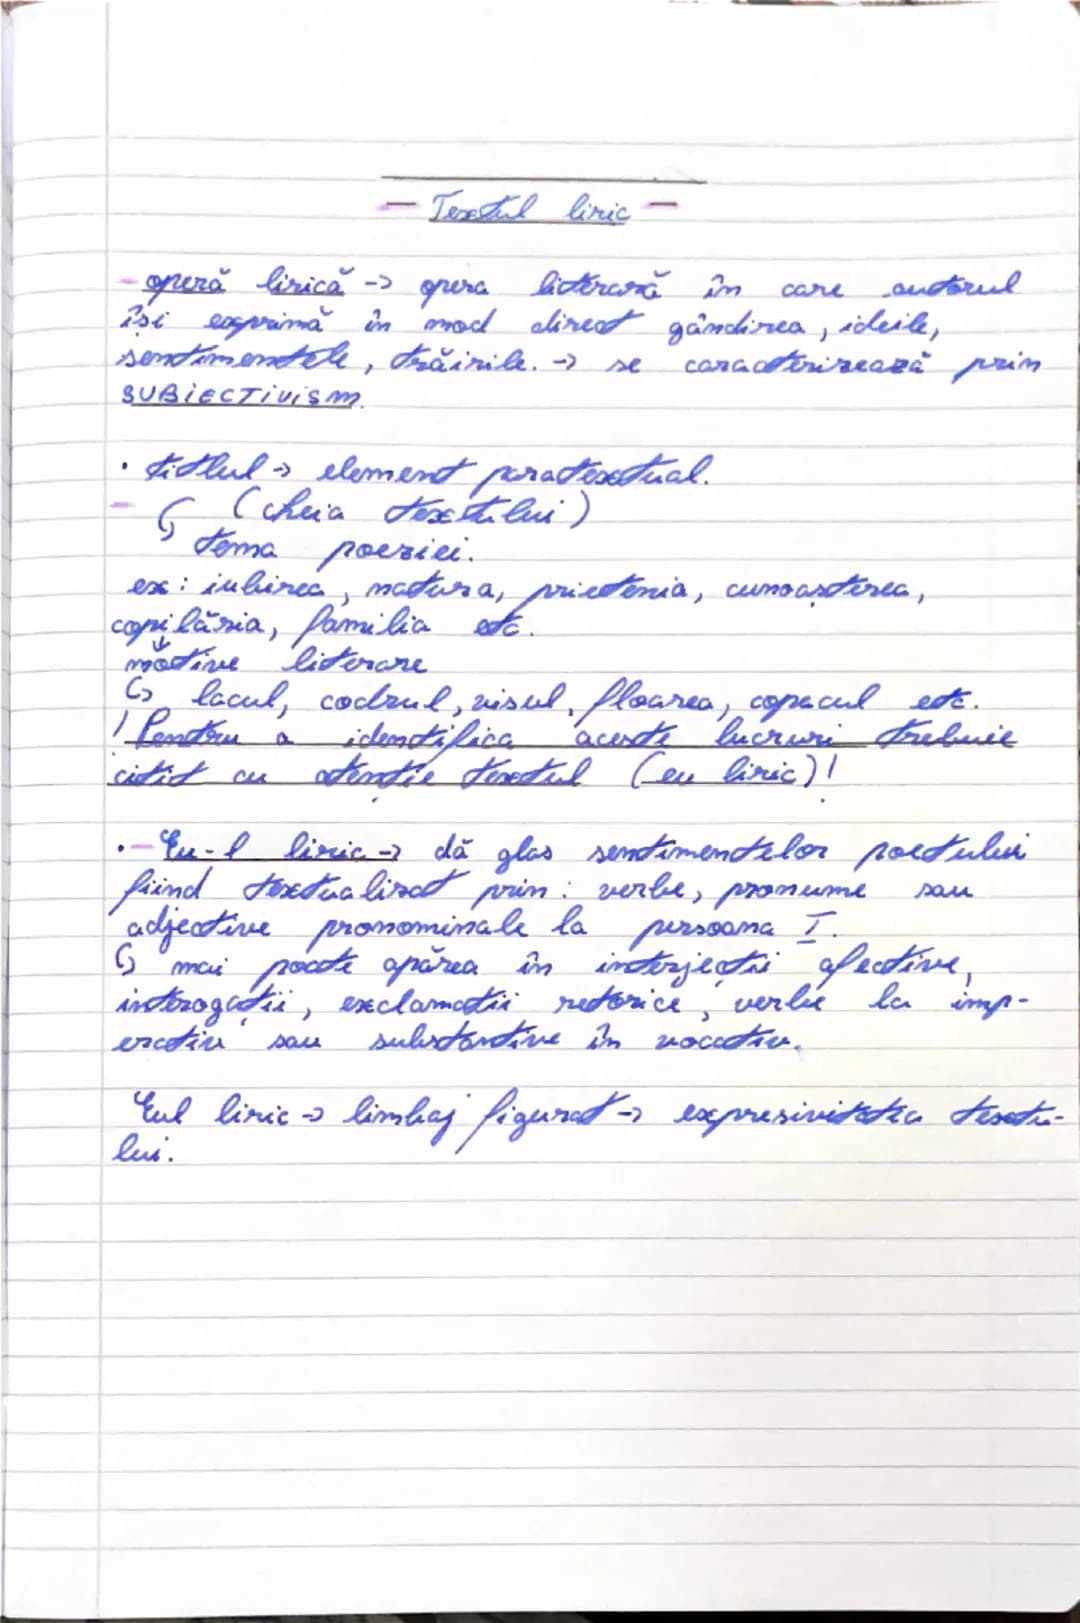 — Textul liric —
- operă lirică -> opera literară în care autorul
își exprimă în mod direct gândirea, ideile,
sentimentele, trăirile. -> se caracterizează prin
SUBIECTIVISM.
• titlul -> element paratextual.
- ↳ (cheia textului)
tema poeziei.
ex: iubirea, natura, prietenia, cunoașterea,
copilăria, familia etc.
motive literare
↳ lacul, codrul, visul, floarea, copacul etc.
! Pentru a identifica aceste lucruri trebuie
citit cu atenție textul (eu liric)!
•- Eu-l liric -> dă glas sentimentelor poetului
fiind textualizat prin: verbe, pronume sau
adjective pronominale la persoana I.
↳ mai poate apărea în interjecții afective,
interogații, exclamații retorice, verbe la imp-
erativ sau substantive în vocativ.
Eul liric -> limbaj figurat -> expresivitatea textu-
lui.